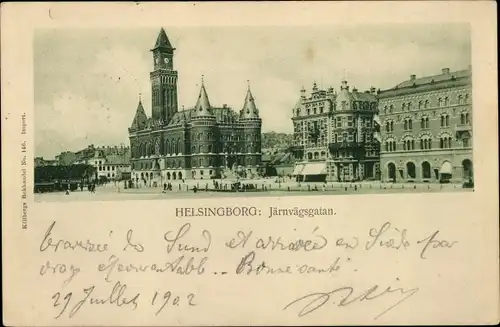 Killbergs Bokhandel No. 146. Import.
HELSINGBORG: Järnvägsgatan.
Traversée du Sund et arrivée en Suède par
épouvantable.. "Bonne santé".
29 Juillet 1902